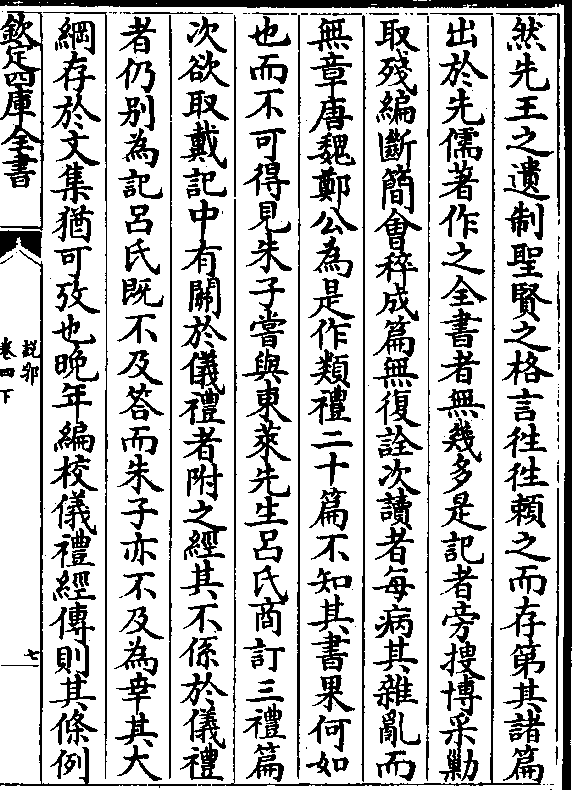 然先王之遺制聖賢之格言往往頼之而存第其諸篇
出於先儒著作之全書者無幾多是記者旁搜博采勦
取殘編斷簡會稡成篇無復詮次讀者每病其雜亂而
無章唐魏鄭公為是作類禮二十篇不知其書果何如
也而不可得見朱子嘗與東萊先生呂氏商訂三禮篇
次欲取戴記中有關於儀禮者附之經其不係於儀禮
者仍别為記呂氏既不及答而朱子亦不及為幸其大
綱存於文集猶可攷也晚年編校儀禮經傳則其條例
欽定四庫全書
説郛
卷四下
七